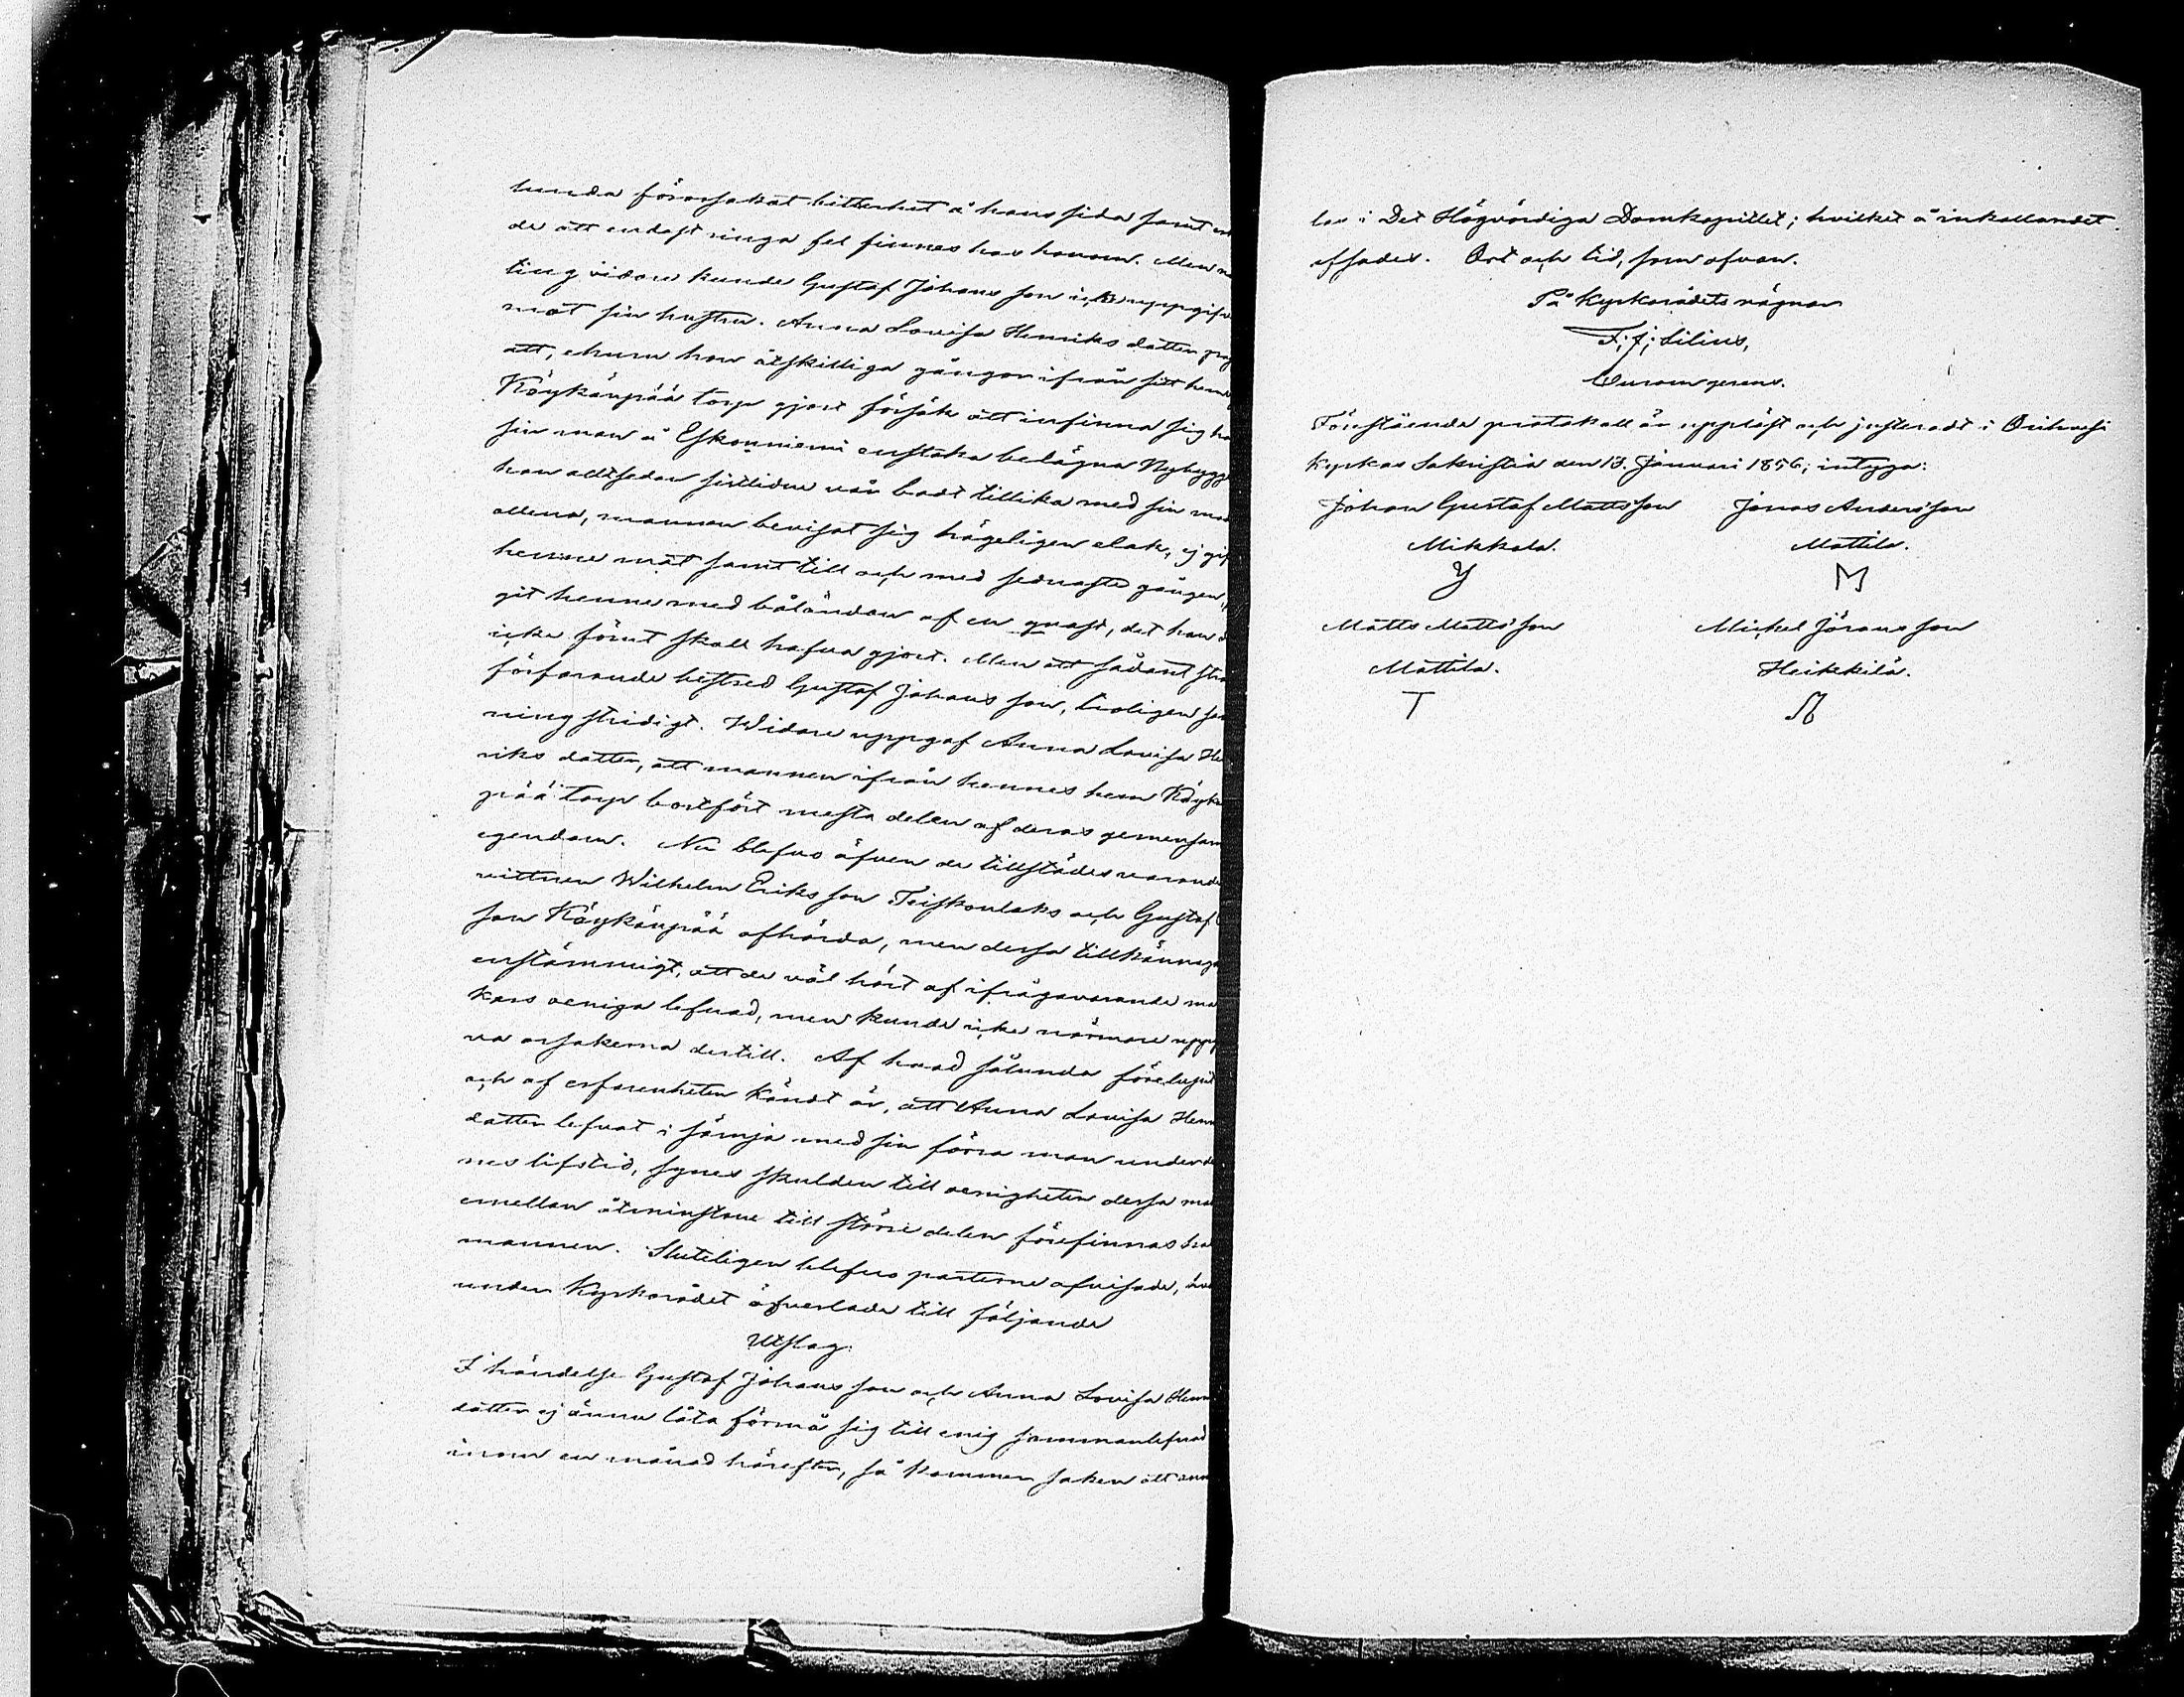 lunda förorsakat bitterhet å hans sida samt
de att endast ringa fel finnes hos honom. Men
ting vidare kunde Gustaf Johansson icke uppgifv
mot sin hustru. Anna Lovisa Henriksdotter
att, ehuru hon åtskilliga gånger ifrån sitt hem
Köykänpää torp gjort försök att infinna sig
sin man å Eskonniemi enstaka belägna Nybygge
han alltsedan sistlidne vår bodt tillika med sin
allena, mannen bevisat sig högeligen elak, ej
henne mat samt till och med sednaste gången
git henne med båländan af en quast, det han
icke förut skall hafva gjort. Men att sådant
förfarande bestred Gustaf Johansson, troligen
ning stridigt. Widare uppgaf Anna Lovisa
riksdotter, att mannen ifrån hennes hem Köyk
pää torp bortfört mesta delen af deras gemensam
egendom. Nu blefvo äfven de tillstädesvarande
vittnen Wilhelm Eriksson Teiskonlaks och Gustaf
son Köykänpää afhörda, men dessa tillkännaga
enstämmigt, att de väl hört af ifrågavarande ma
kars oeniga lefnad, men kunde icke närmare upp
va orsakerna dertill. Af hvad sålunda förelupit
och af erfarenheten kändt är, att Anna Lovisa Hen
dotter lefvat i sämja med sin förra man under
nes lifstid, synes skulden till oenigheten dessa
emellan åtminstone till större delen förefinnas
mannen. Sluteligen blefvo parterne afvisade,
under Kyrkorådet öfverlade till följande
Utslag:
I händelse Gustaf Johansson och Anna Lovisa Hen
dotter ej ännu låta förmå sig till enig sammanlefnad
inom en månad härefter, så kommer saken att anm
las i Det Högvördiga Domkapitlet; hvilket å inkallandet
afsades. Ort och tid, som ofvan.
På Kyrkorådets vägnar
F. J. Lilius,
Curam gerens.
Förestående protokoll är uppläst och justeradt i Orihvesi
Kyrkas Sakristia den 13. Januari 1856; intyga:
Johan Gustaf Mattsson Jonas Andersson
Mikkola. Mattila.
Y M
Matts Mattsson Michel Göransson
Mattila. Heikkilä.
T